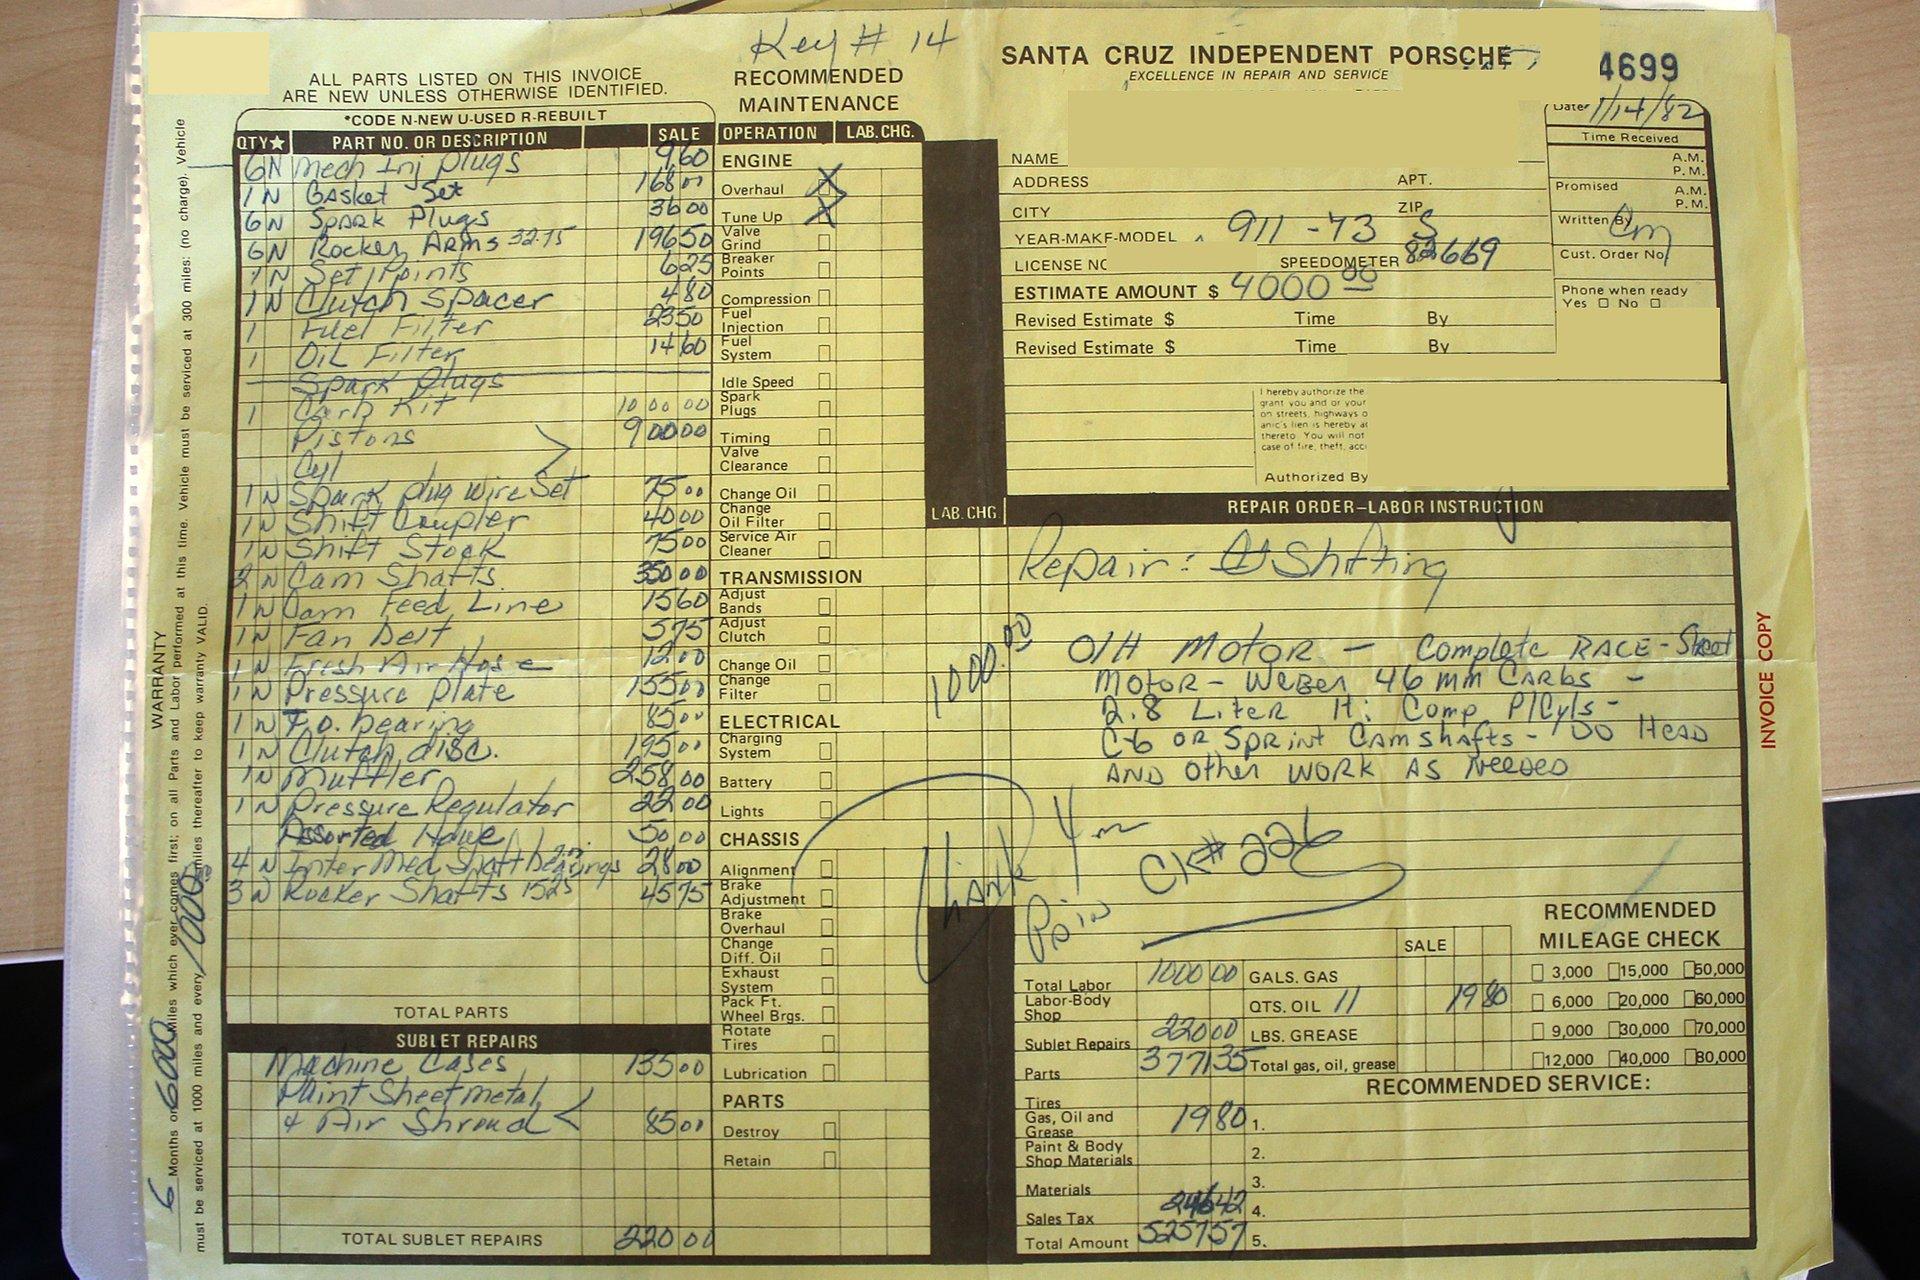 Key # 14
ALL PARTS LISTED ON THIS INVOICE
ARE NEW UNLESS OTHERWISE IDENTIFIED.
*CODE N-NEW U-USED R-REBUILT
QTY★ PART NO. OR DESCRIPTION SALE
6 N Mech Inj plugs 9 60
1 N Gasket Set 168 00
6 N Spark Plugs 36 00
6 N Rocker Arms 32.75 196 50
1 N Set Points 6 25
1 N Clutch Spacer 4 80
1 Fuel Filter 23 50
1 Oil Filter 14 60
Spark Plugs
1 Carb Kit 1000 00
Pistons 900 00
Cyl
1 N Spark plug wire Set 75 00
1 N Shift Coupler 40 00
1 N Shift Stock 75 00
2 N Cam Shafts 350 00
1 N Cam Feed Line 15 60
1 N Fan Belt 5 75
1 N Fresh Air Hose 12 00
1 N Pressure Plate 155 00
1 N T.O. bearing 85 00
1 N Clutch disc. 195 00
1 N Muffler 258 00
1 N Pressure Regulator 22 00
Assorted 50 00
4 N Inter Med. Shaft bearings 28 00
3 N Rocker Shafts 15 25 45 75
TOTAL PARTS
SUBLET REPAIRS
Machine Cases 135 00
Paint Sheetmetal
+ Air Shroud 85 00
TOTAL SUBLET REPAIRS 220 00
WARRANTY
6 Months or 6000 Miles which ever comes first; on all Parts and Labor performed at this time. Vehicle must be serviced at 300 miles: (no charge). Vehicle
must be serviced at 1000 miles and every 1000 miles thereafter to keep warranty VALID.
RECOMMENDED
MAINTENANCE
OPERATION LAB. CHG.
ENGINE
Overhaul X
Tune Up X
Valve
Grind
Breaker
Points
Compression
Fuel
Injection
Fuel
System
Idle Speed
Spark
Plugs
Timing
Valve
Clearance
Change Oil
Change
Oil Filter
Service Air
Cleaner
TRANSMISSION
Adjust
Bands
Adjust
Clutch
Change Oil
Change
Filter
ELECTRICAL
Charging
System
Battery
Lights
CHASSIS
Alignment
Brake
Adjustment
Brake
Overhaul
Change
Diff. Oil
Exhaust
System
Pack Ft.
Wheel Brgs.
Rotate
Tires
Lubrication
PARTS
Destroy
Retain
SANTA CRUZ INDEPENDENT PORSCHE
EXCELLENCE IN REPAIR AND SERVICE
4699
Date 1/14/82
Time Received
A.M.
P.M.
Promised A.M.
P.M.
Written By Cm
Cust. Order No.
Phone when ready
Yes No
NAME
ADDRESS APT.
CITY ZIP
YEAR-MAKE-MODEL 911 - 73 S
LICENSE NO SPEEDOMETER 82669
ESTIMATE AMOUNT $ 4000 00
Revised Estimate $ Time By
Revised Estimate $ Time By
I hereby authorize the
grant you and or your
on streets, highways o
anic's lien is hereby a
thereto. You will not
case of fire, theft, acci
Authorized By
LAB. CHG. REPAIR ORDER–LABOR INSTRUCTION
Repair: Shifting
1000.00
O/H Motor - Complete RACE-Street
Motor - Weber 46 mm Carbs -
2.8 Liter Hi Comp P/Cyls -
C-6 or Sprint Camshafts - DO HEAD
AND other WORK AS Needed
Thank You
Paid CK# 226
Total Labor 1000 00
Labor-Body
Shop
Sublet Repairs 220 00
Parts 3771 35
Tires
Gas, Oil and
Grease 19 80
Paint & Body
Shop Materials
Materials
Sales Tax 246 42
Total Amount 5257 57
SALE
GALS. GAS
QTS. OIL 11 19 80
LBS. GREASE
Total gas, oil, grease
RECOMMENDED
MILEAGE CHECK
3,000 15,000 50,000
6,000 20,000 60,000
9,000 30,000 70,000
12,000 40,000 80,000
RECOMMENDED SERVICE:
1.
2.
3.
4.
5.
INVOICE COPY